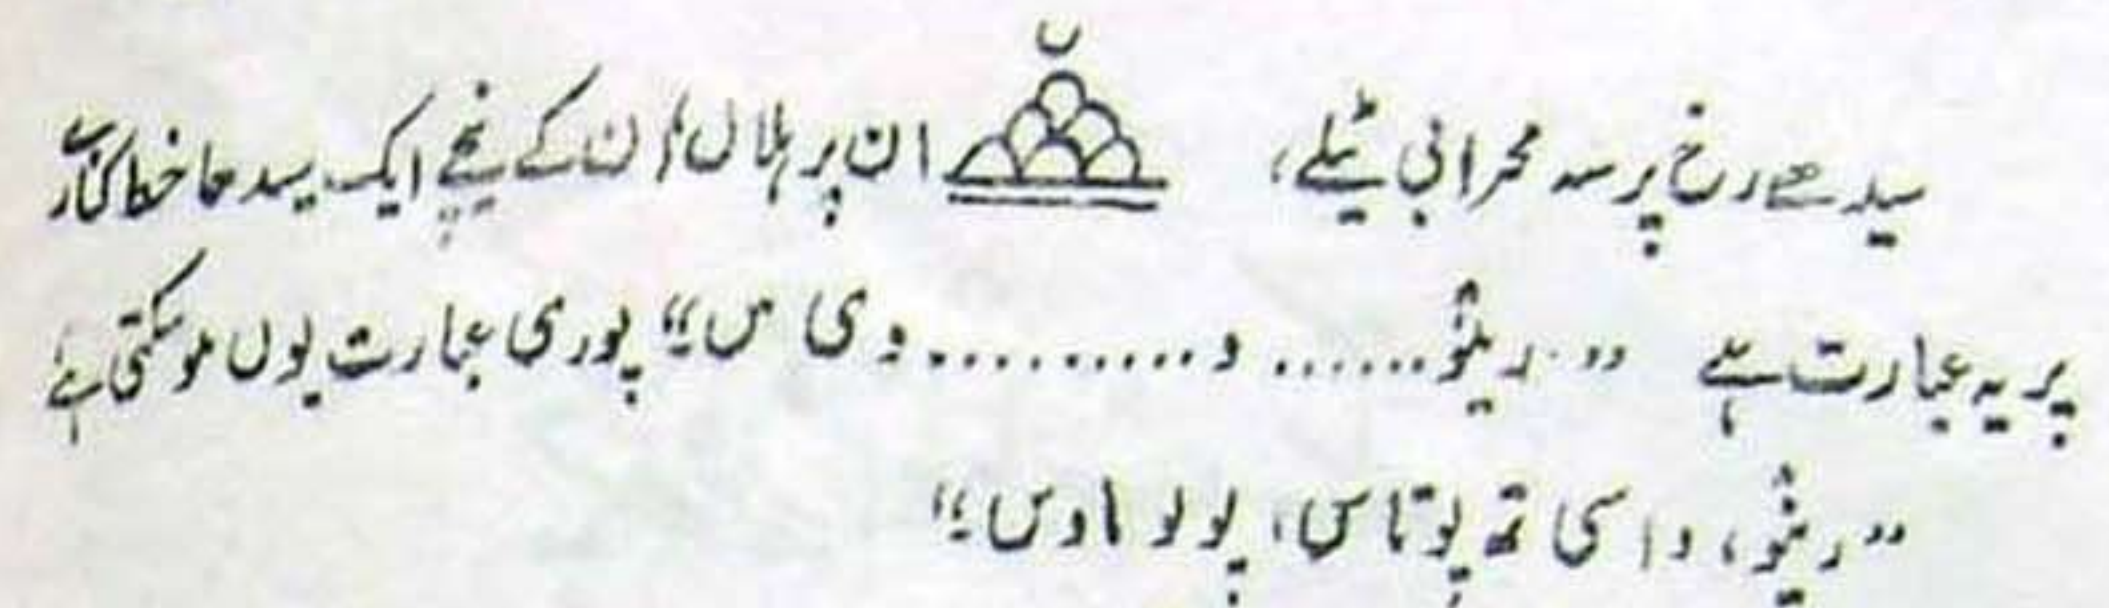 سیدھے رخ پر سہ محرابی ٹیلے، ان پر ہلال، ان کے نیچے ایک سیدھا خط کنار
پر یہ عبارت ہے "رینو...... و.......... وی س؛" پوری عبارت یوں ہو سکتی ہے
"رینو، واسی تھ پوتاس، پولو اوس؛"